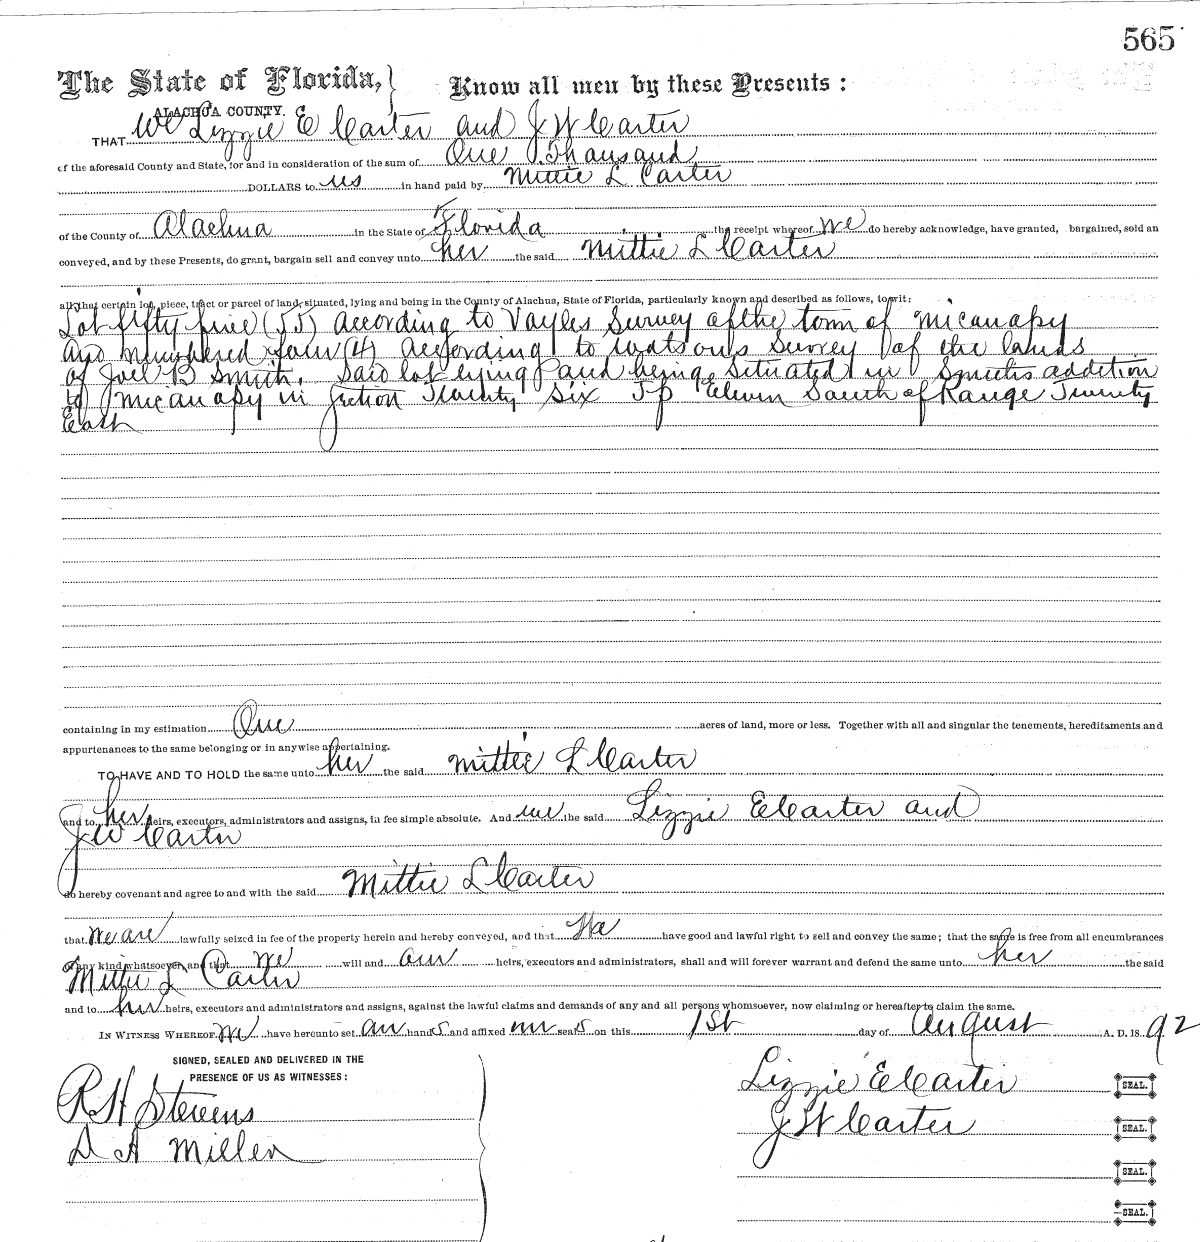 565
The State of Florida, } Know all men by these Presents:
ALACHUA COUNTY.
THAT We Lizzie E Carter and J W Carter
of the aforesaid County and State, for and in consideration of the sum of One Thousand
DOLLARS to us in hand paid by Mittie L Carter
of the County of Alachua in the State of Florida the receipt whereof we do hereby acknowledge, have granted, bargained, sold an
conveyed, and by these Presents, do grant, bargain sell and convey unto her the said Mittie L Carter
all that certain lot, piece, tract or parcel of land, situated, lying and being in the County of Alachua, State of Florida, particularly known and described as follows, to wit:
Lot fifty five (55) according to Vayles Survey of the town of Micanopy
and numbered four (4) according to Watsons Survey of the lands
of Joel B Smith. Said lot lying and being situated in Smiths addition
to Micanopy in Section Twenty Six Tp Eleven South of Range Twenty
East
containing in my estimation One acres of land, more or less. Together with all and singular the tenements, hereditaments and
appurtenances to the same belonging or in anywise appertaining.
TO HAVE AND TO HOLD the same unto her the said Mittie L Carter
and to her heirs, executors, administrators and assigns, in fee simple absolute. And we the said Lizzie E Carter and
J W Carter
do hereby covenant and agree to and with the said Mittie L Carter
that we are lawfully seized in fee of the property herein and hereby conveyed, and that We have good and lawful right to sell and convey the same; that the same is free from all encumbrances
of any kind whatsoever, and that we will and our heirs, executors and administrators, shall and will forever warrant and defend the same unto her the said
Mittie L Carter
and to her heirs, executors and administrators and assigns, against the lawful claims and demands of any and all persons whomsoever, now claiming or hereafter to claim the same.
IN WITNESS WHEREOF we have hereunto set our hands and affixed our seals on this 1st day of August A. D. 1892
SIGNED, SEALED AND DELIVERED IN THE
PRESENCE OF US AS WITNESSES:
Lizzie E Carter SEAL.
R H Stevens
J W Carter SEAL.
D A Miller
SEAL.
SEAL.